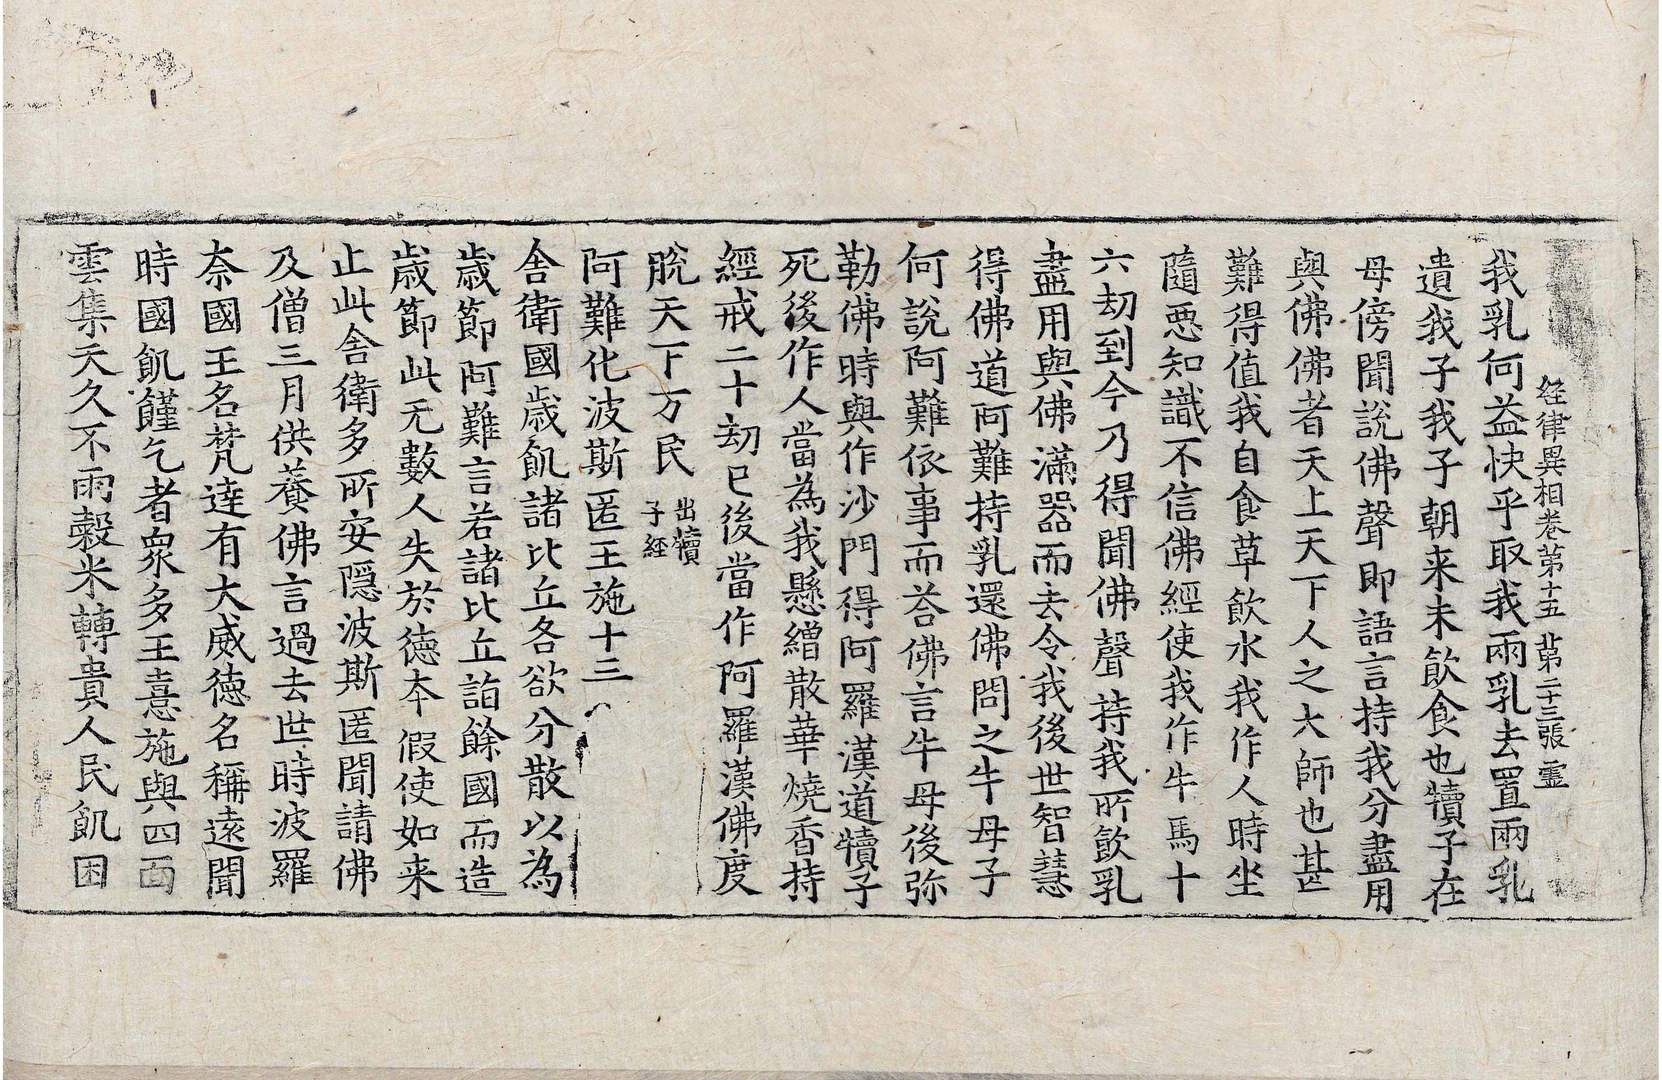 經律異相卷第十五 苐二十三張 霊
我乳何益快乎取我兩乳去置兩乳
遺我子我子朝来未飲食也犢子在
母傍聞說佛聲即語言持我分盡用
與佛佛者天上天下人之大師也甚
難得值我自食草飲水我作人時坐
隨惡知識不信佛經使我作牛馬十
六劫到今乃得聞佛聲持我所飲乳
盡用與佛滿器而去令我後世智慧
得佛道阿難持乳還佛問之牛母子
何說阿難依事而荅佛言牛母後弥
勒佛時與作沙門得阿羅漢道犢子
死後作人當為我懸繒散華燒香持
經戒二十劫已後當作阿羅漢佛度
脫天下万民 出犢子經
阿難化波斯匿王施十三
舍衛國歳飢諸比丘各欲分散以為
歳節阿難言若諸比丘詣餘國而造
歳節此无數人失於德夲假使如来
止此舍衛多所安隠波斯匿聞請佛
及僧三月供養佛言過去世時波羅
奈國王名梵達有大威徳名稱遠聞
時國飢饉乞者眾多王憙施與四面
雲集天久不雨穀米轉貴人民飢困